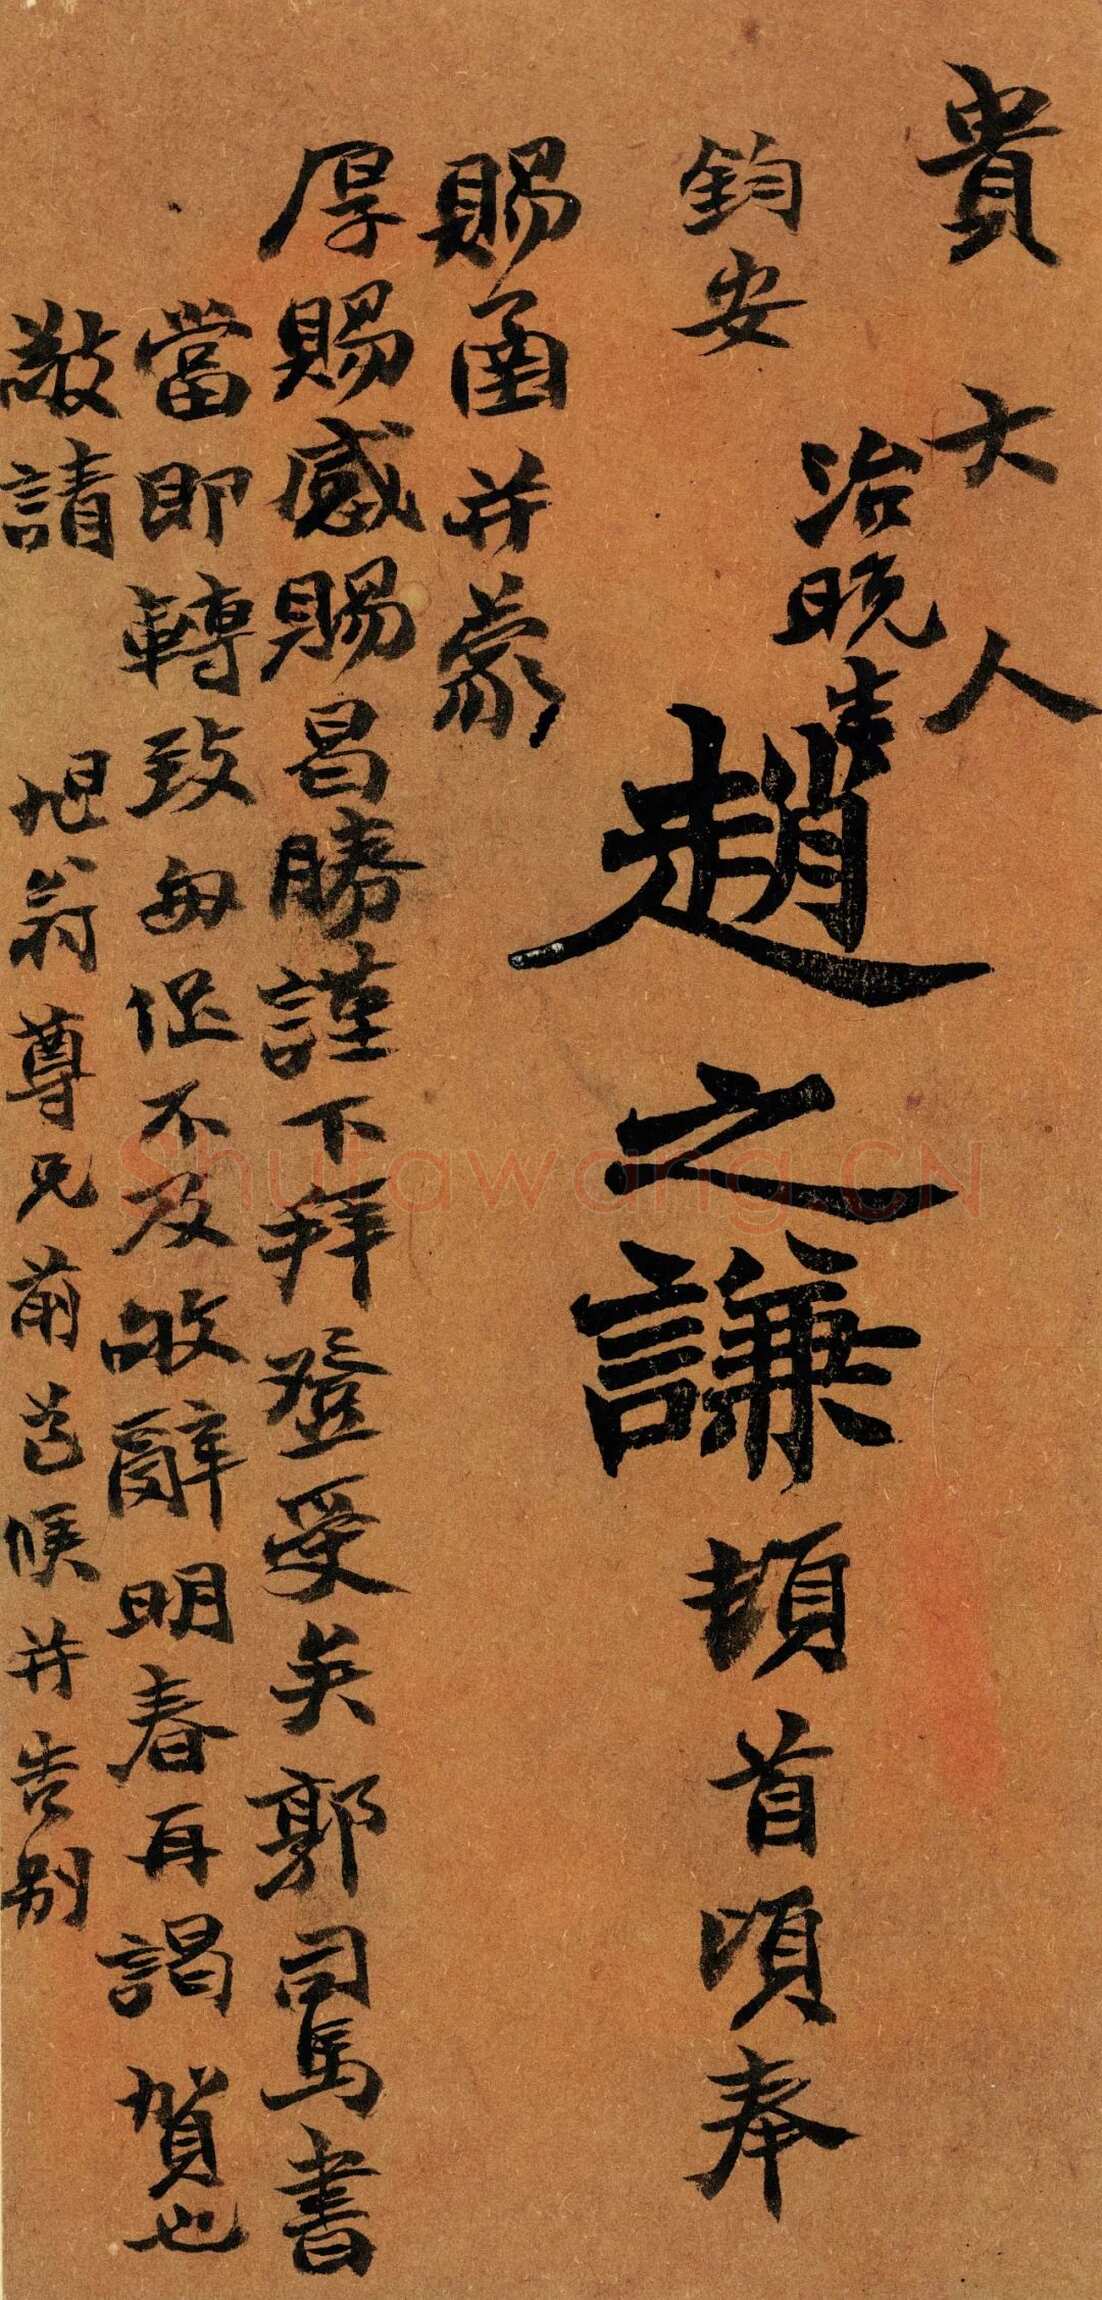 貴大人
鈞安
治晚生趙之謙頓首頃奉
賜函并蒙
厚賜感賜昌勝謹下拜登受矣郭司馬書
當即轉致匆促不及敂辭明春再謁賀也
敬請
坦翁尊兄前乞候并告別
Shufawang.CN